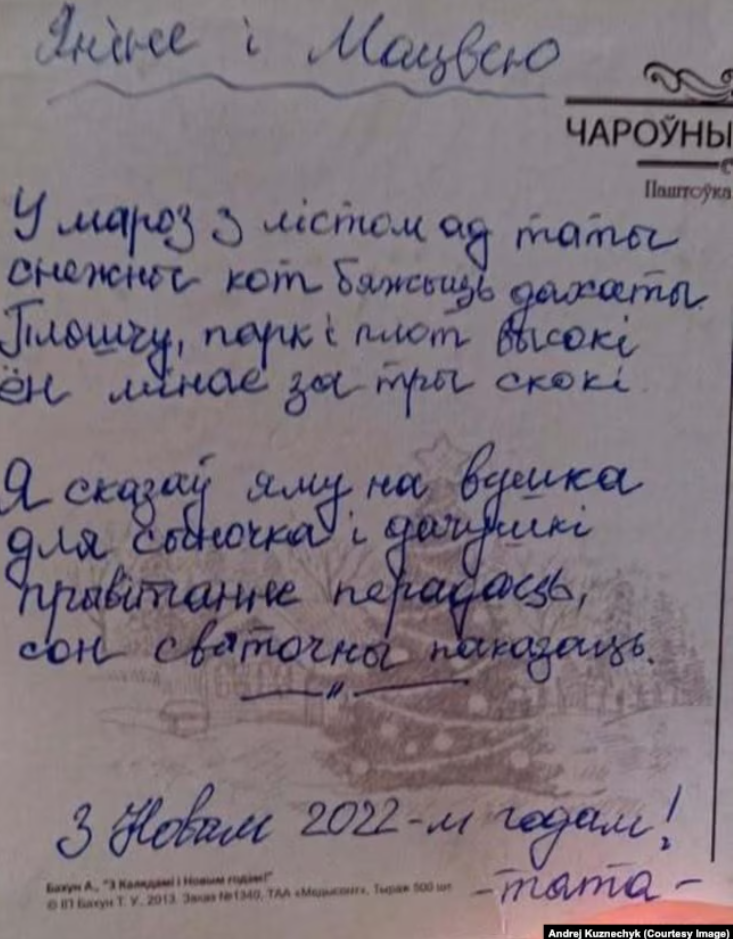 Яніне і Мацвею
ЧАРОЎНЫ
Паштоўка
У мароз з лістом ад таты
снежны кот бяжыць дахаты.
Плошчу, парк і плот высокі
ён мінае за тры скокі.
Я сказаў яму на вушка
для сыночка і дачушкі
прывітанне перадаць,
сон святочны паказаць.
З Новым 2022-м годам!
Бахун А., "З Калядамі і Новым годам!"
© ІП Бахун Т. У., 2013. Заказ №1340, ТАА «Медысонт», Тыраж 500 шт
-тата-
Andrej Kuznechyk (Courtesy Image)